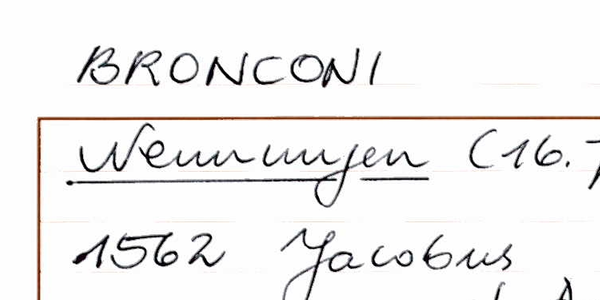 BRONCONI
Nennungen (16.
1562 Jacobus